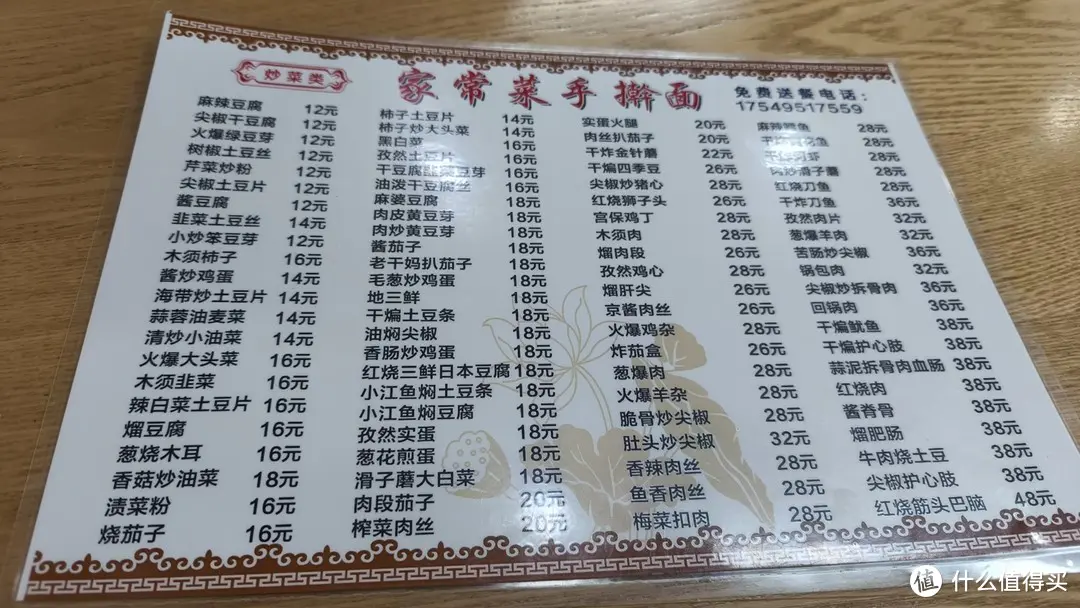 家常菜手擀面
炒菜类
免费送餐电话：
17549517559
麻辣豆腐 12元
尖椒干豆腐 12元
火爆绿豆芽 12元
树椒土豆丝 12元
芹菜炒粉 12元
尖椒土豆片 12元
酱豆腐 12元
韭菜土豆丝 14元
小炒笨豆芽 12元
木须柿子 16元
酱炒鸡蛋 14元
海带炒土豆片 14元
蒜蓉油麦菜 14元
清炒小油菜 14元
火爆大头菜 16元
木须韭菜 16元
辣白菜土豆片 16元
熘豆腐 16元
葱烧木耳 16元
香菇炒油菜 18元
渍菜粉 16元
烧茄子 16元
柿子土豆片 14元
柿子炒大头菜 14元
黑白菜 16元
孜然土豆片 16元
干豆腐韭菜豆芽 16元
油泼干豆腐丝 16元
麻婆豆腐 18元
肉皮黄豆芽 18元
肉炒黄豆芽 18元
酱茄子 18元
老干妈扒茄子 18元
毛葱炒鸡蛋 18元
地三鲜 18元
干煸土豆条 18元
油焖尖椒 18元
香肠炒鸡蛋 18元
红烧三鲜日本豆腐 18元
小江鱼焖土豆条 18元
小江鱼焖豆腐 18元
孜然实蛋 18元
葱花煎蛋 18元
滑子蘑大白菜 18元
肉段茄子 20元
榨菜肉丝 20元
实蛋火腿 20元
肉丝扒茄子 20元
干炸金针蘑 22元
干煸四季豆 26元
尖椒炒猪心 28元
红烧狮子头 26元
宫保鸡丁 28元
木须肉 28元
熘肉段 26元
孜然鸡心 28元
熘肝尖 26元
京酱肉丝 26元
火爆鸡杂 28元
炸茄盒 26元
葱爆肉 28元
火爆羊杂 28元
脆骨炒尖椒 28元
肚头炒尖椒 32元
香辣肉丝 28元
鱼香肉丝 28元
梅菜扣肉 28元
麻辣 鱼 28元
28元
28元
滑子蘑 28元
红烧刀鱼 28元
干炸刀鱼 36元
孜然肉片 32元
葱爆羊肉 32元
苦肠炒尖椒 36元
锅包肉 32元
尖椒炒拆骨肉 36元
回锅肉 36元
干煸鱿鱼 38元
干煸护心肢 38元
蒜泥拆骨肉血肠 38元
红烧肉 38元
酱脊骨 38元
熘肥肠 38元
牛肉烧土豆 38元
尖椒护心肢 38元
红烧筋头巴脑 48元
值 什么值得买